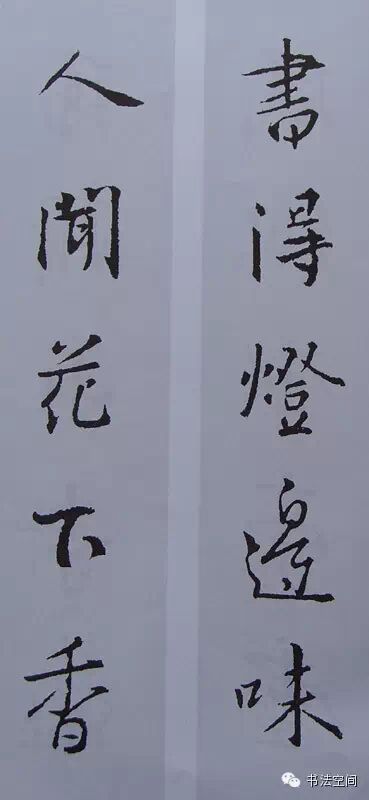 書得燈邊味
人聞花下香
书法空间